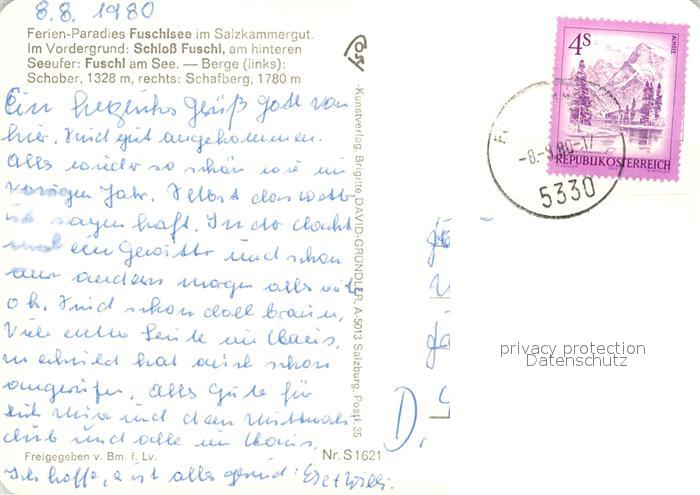 8.8. 1980
Ferien-Paradies Fuschlsee im Salzkammergut.
Im Vordergrund: Schloß Fuschl, am hinteren
Seeufer: Fuschl am See. — Berge (links):
Schober, 1328 m, rechts: Schafberg, 1780 m
Ein Gruß Gott von
hier. Sind gut angekommen.
Alles wieder so schön wie im
vorigen Jahr. Selbst das Wetter
ist sagenhaft. In der Nacht
ein Gewitter und schon
am andern Morgen alles
o.k. Sind schon doll braun,
viele nette Leute im Haus.
hat auch schon
angerufen. Alles Gute für
und den
club und alle im Haus.
Ich hoffe, es ist alles gesund!
Freigegeben v. Bm. f. Lv.
Nr. S 1621
Post
Kunstverlag, Brigitte DAVID-GRÜNDLER, A-5013 Salzburg, Postf. 35
4S
ALMSEE
REPUBLIK ÖSTERREICH
-8.-9.80-17
5330
D.
privacy protection
Datenschutz